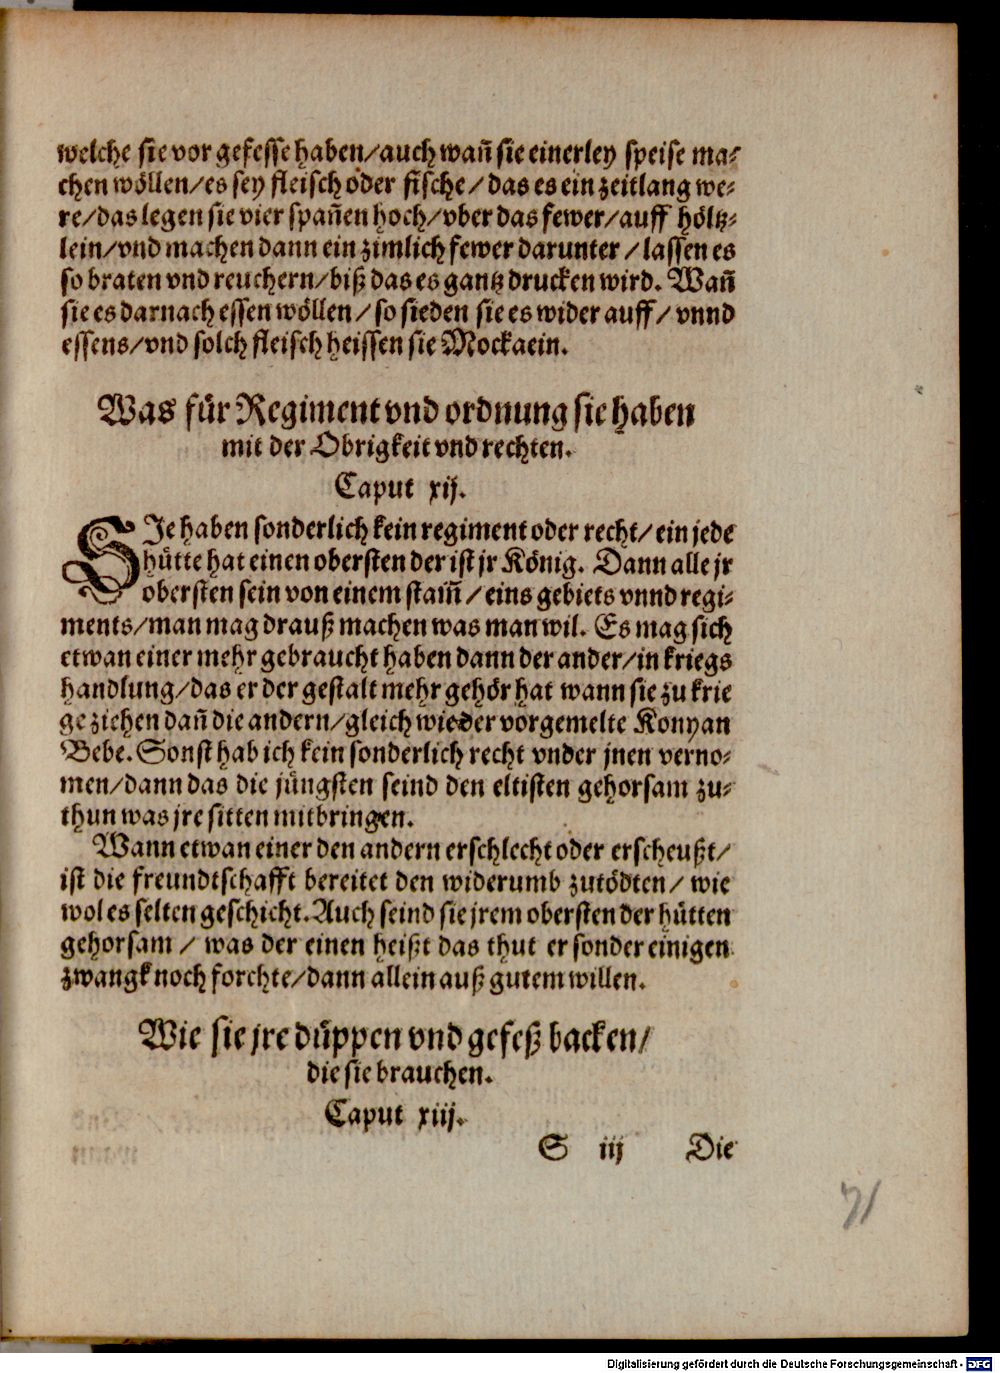 welche sie vor gefesse haben/auch wañ sie einerley speise ma⸗
chen wöllen/es sey fleisch oder fische/das es ein zeitlang we⸗
re/das legen sie vier spañen hoch/vber das fewer/auff höltz⸗
lein/vnd machen dann ein zimlich fewer darunter/lassen es
so braten vnd reuchern/biß das es gantz drucken wird. Wañ
sie es darnach essen wöllen/so sieden sie es wider auff/vnnd
essens/vnd solch fleisch heissen sie Mockaein.
Was für Regiment vnd ordnung sie haben
mit der Obrigkeit vnd rechten.
Caput xij.
SJe haben sonderlich kein regiment oder recht/ein jede
hütte hat einen obersten der ist jr König. Dann alle jr
obersten sein von einem stam̃/eins gebiets vnnd regi⸗
ments/man mag drauß machen was man wil. Es mag sich
etwan einer mehr gebraucht haben dann der ander/in kriegs
handlung/das er der gestalt mehr gehör hat wann sie zu krie
ge ziehen dañ die andern/gleich wie der vorgemelte Konyan
Bebe. Sonst hab ich kein sonderlich recht vnder jnen verno⸗
men/dann das die jüngsten seind den eltisten gehorsam zu⸗
thun was jre sitten mitbringen.
Wann etwan einer den andern erschlecht oder erscheußt/
ist die freundtschafft bereitet den widerumb zutödten/wie
wol es selten geschicht. Auch seind sie jrem obersten der hütten
gehorsam/was der einen heißt das thut er sonder einigen
zwangk noch forchte/dann allein auß gutem willen.
Wie sie jre düppen vnd gefeß backen/
die sie brauchen.
Caput xiij.
S iij Die
71
Digitalisierung gefördert durch die Deutsche Forschungsgemeinschaft - DFG